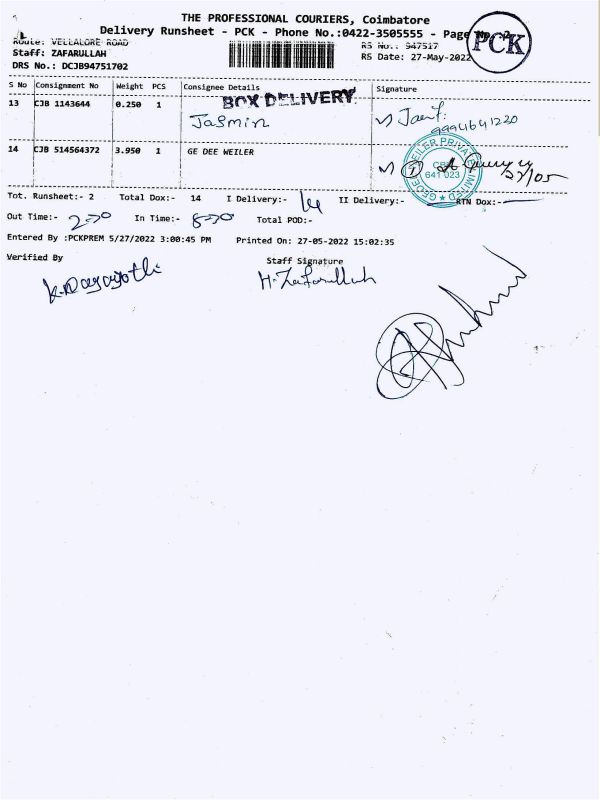 THE PROFESSIONAL COURIERS, Coimbatore
Delivery Runsheet - PCK - Phone No.:0422-3505555 - Page No.:2
PCK
Route: VELLALORE ROAD
RS No.: 947517
Staff: ZAFARULLAH
RS Date: 27-May-2022
DRS No.: DCJB94751702
S No Consignment No Weight PCS Consignee Details Signature
13 CJB 1143644 0.250 1 BOX DELIVERY
Jasmin
9994641220
14 CJB 514564372 3.950 1 GE DEE WEILER
GEDEE WEILER PRIVATE LIMITED
CBE
641 023
27/05
Tot. Runsheet:- 2 Total Dox:- 14 I Delivery:- 14 II Delivery:- RTN Dox:-
Out Time:- 2-30 In Time:- 8-30 Total POD:-
Entered By :PCKPREM 5/27/2022 3:00:45 PM Printed On: 27-05-2022 15:02:35
Verified By Staff Signature
H. Zafarullah